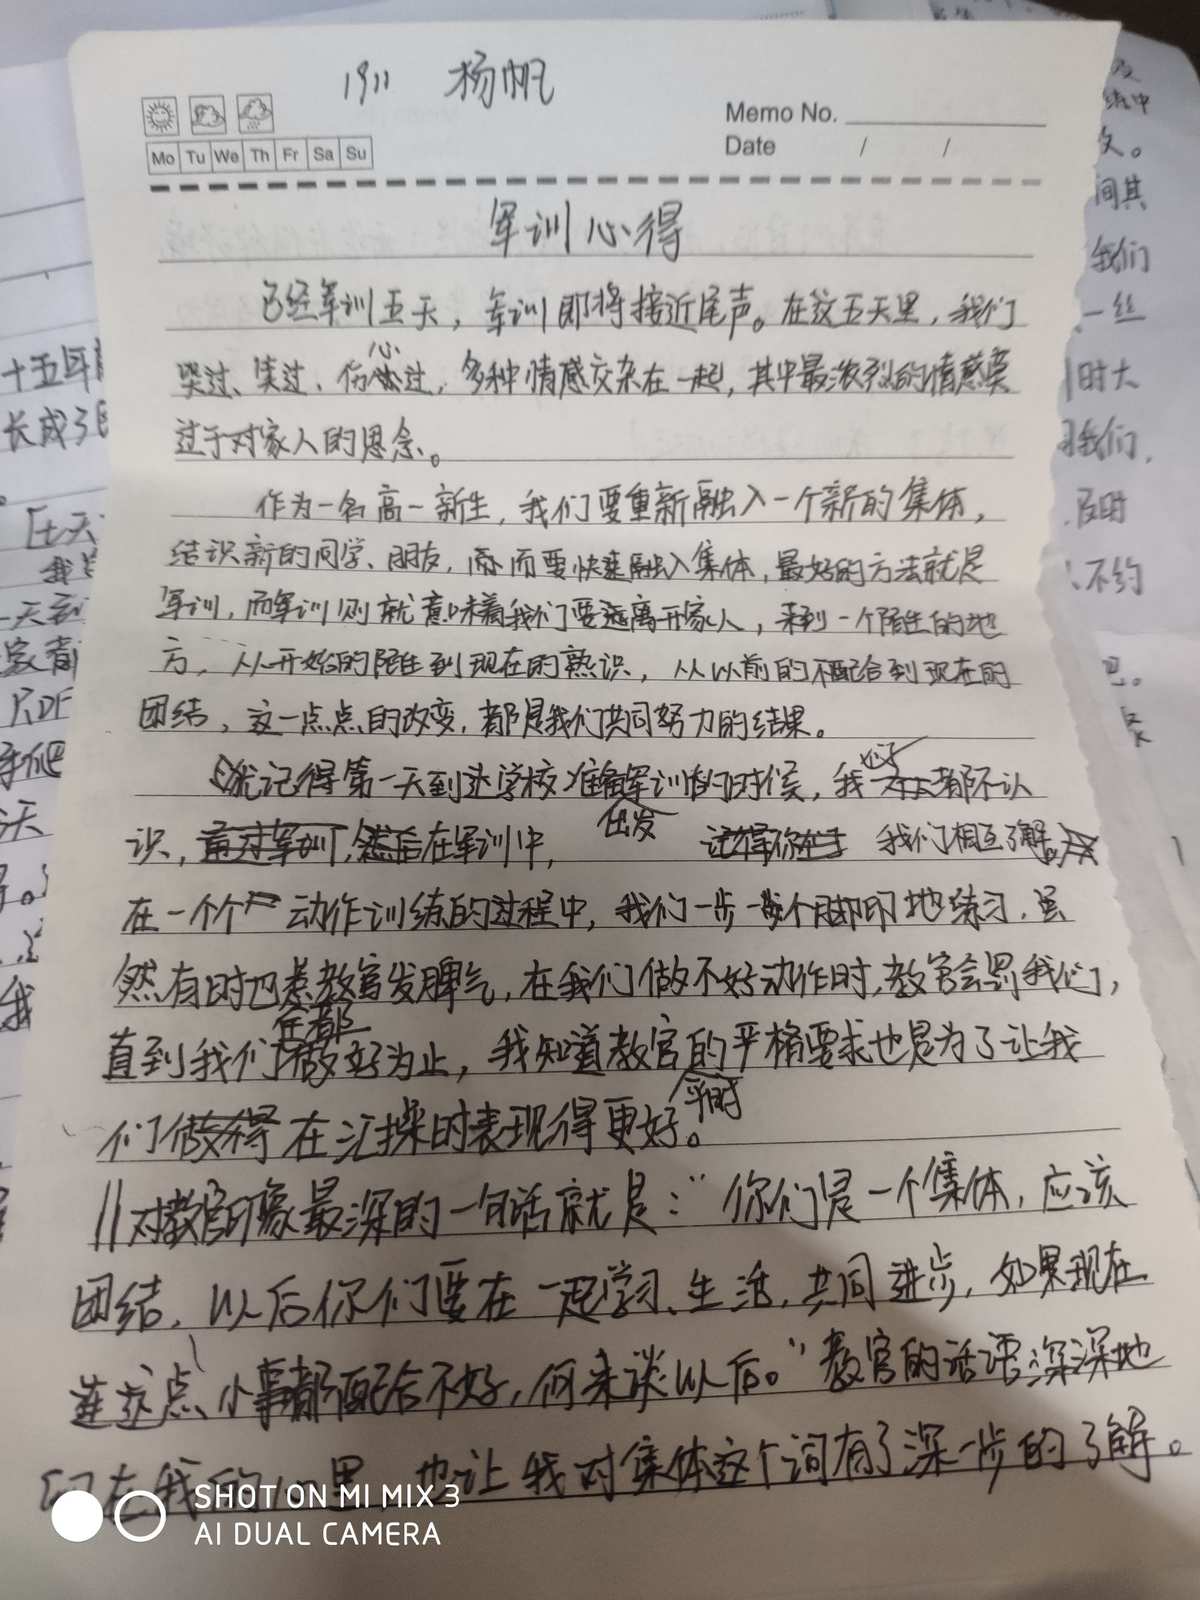 1911 杨帆
Memo No.
Mo Tu We Th Fr Sa Su
Date / /
军训心得
已经军训五天，军训即将接近尾声。在这五天里，我们
哭过、笑过、伤心过，多种情感交杂在一起，其中最浓烈的情感莫
过于对家人的思念。
作为一名高一新生，我们要重新融入一个新的集体，
结识新的同学、朋友，而要快速融入集体，最好的方法就是
军训，而军训则就意味着我们要远离开家人，来到一个陌生的地
方，从开始的陌生到现在的熟识，从以前的不配合到现在的
团结，这一点点的改变，都是我们共同努力的结果。
犹记得第一天到达学校准备军训的时候，我都不认
出发
识，在军训中，我们相互了解。
在一个个动作训练的过程中，我们一步一个脚印地练习，虽
然有时也惹教官发脾气，在我们做不好动作时，教官会罚我们，
全都
直到我们做好为止，我知道教官的严格要求也是为了让我
平时
们在汇操时表现得更好。
对教官印象最深的一句话就是：“你们是一个集体，应该
团结，以后你们要在一起学习、生活，共同进步，如果现在
连这点小事都配合不好，何来谈以后。”教官的话语深深地
印在我的心里，也让我对集体这个词有了深一步的了解。
十五年
长成了
我
一天到
家看
PDF
天
我
结中
间其
我们
一丝
时大
我们，
及时
不约
SHOT ON MI MIX 3
AI DUAL CAMERA